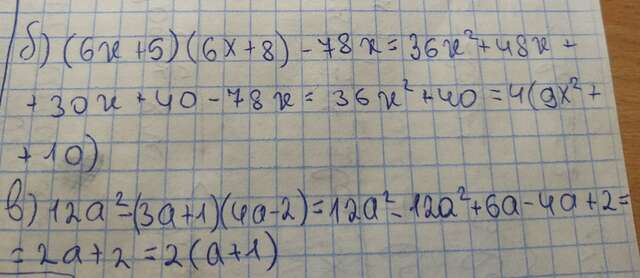 б) (6x+5)(6x+8)-78x=36x²+48x+
+30x+40-78x=36x²+40=4(9x²+
+10)
в) 12a²-(3a+1)(4a-2)=12a²-12a²+6a-4a+2=
=2a+2=2(a+1)